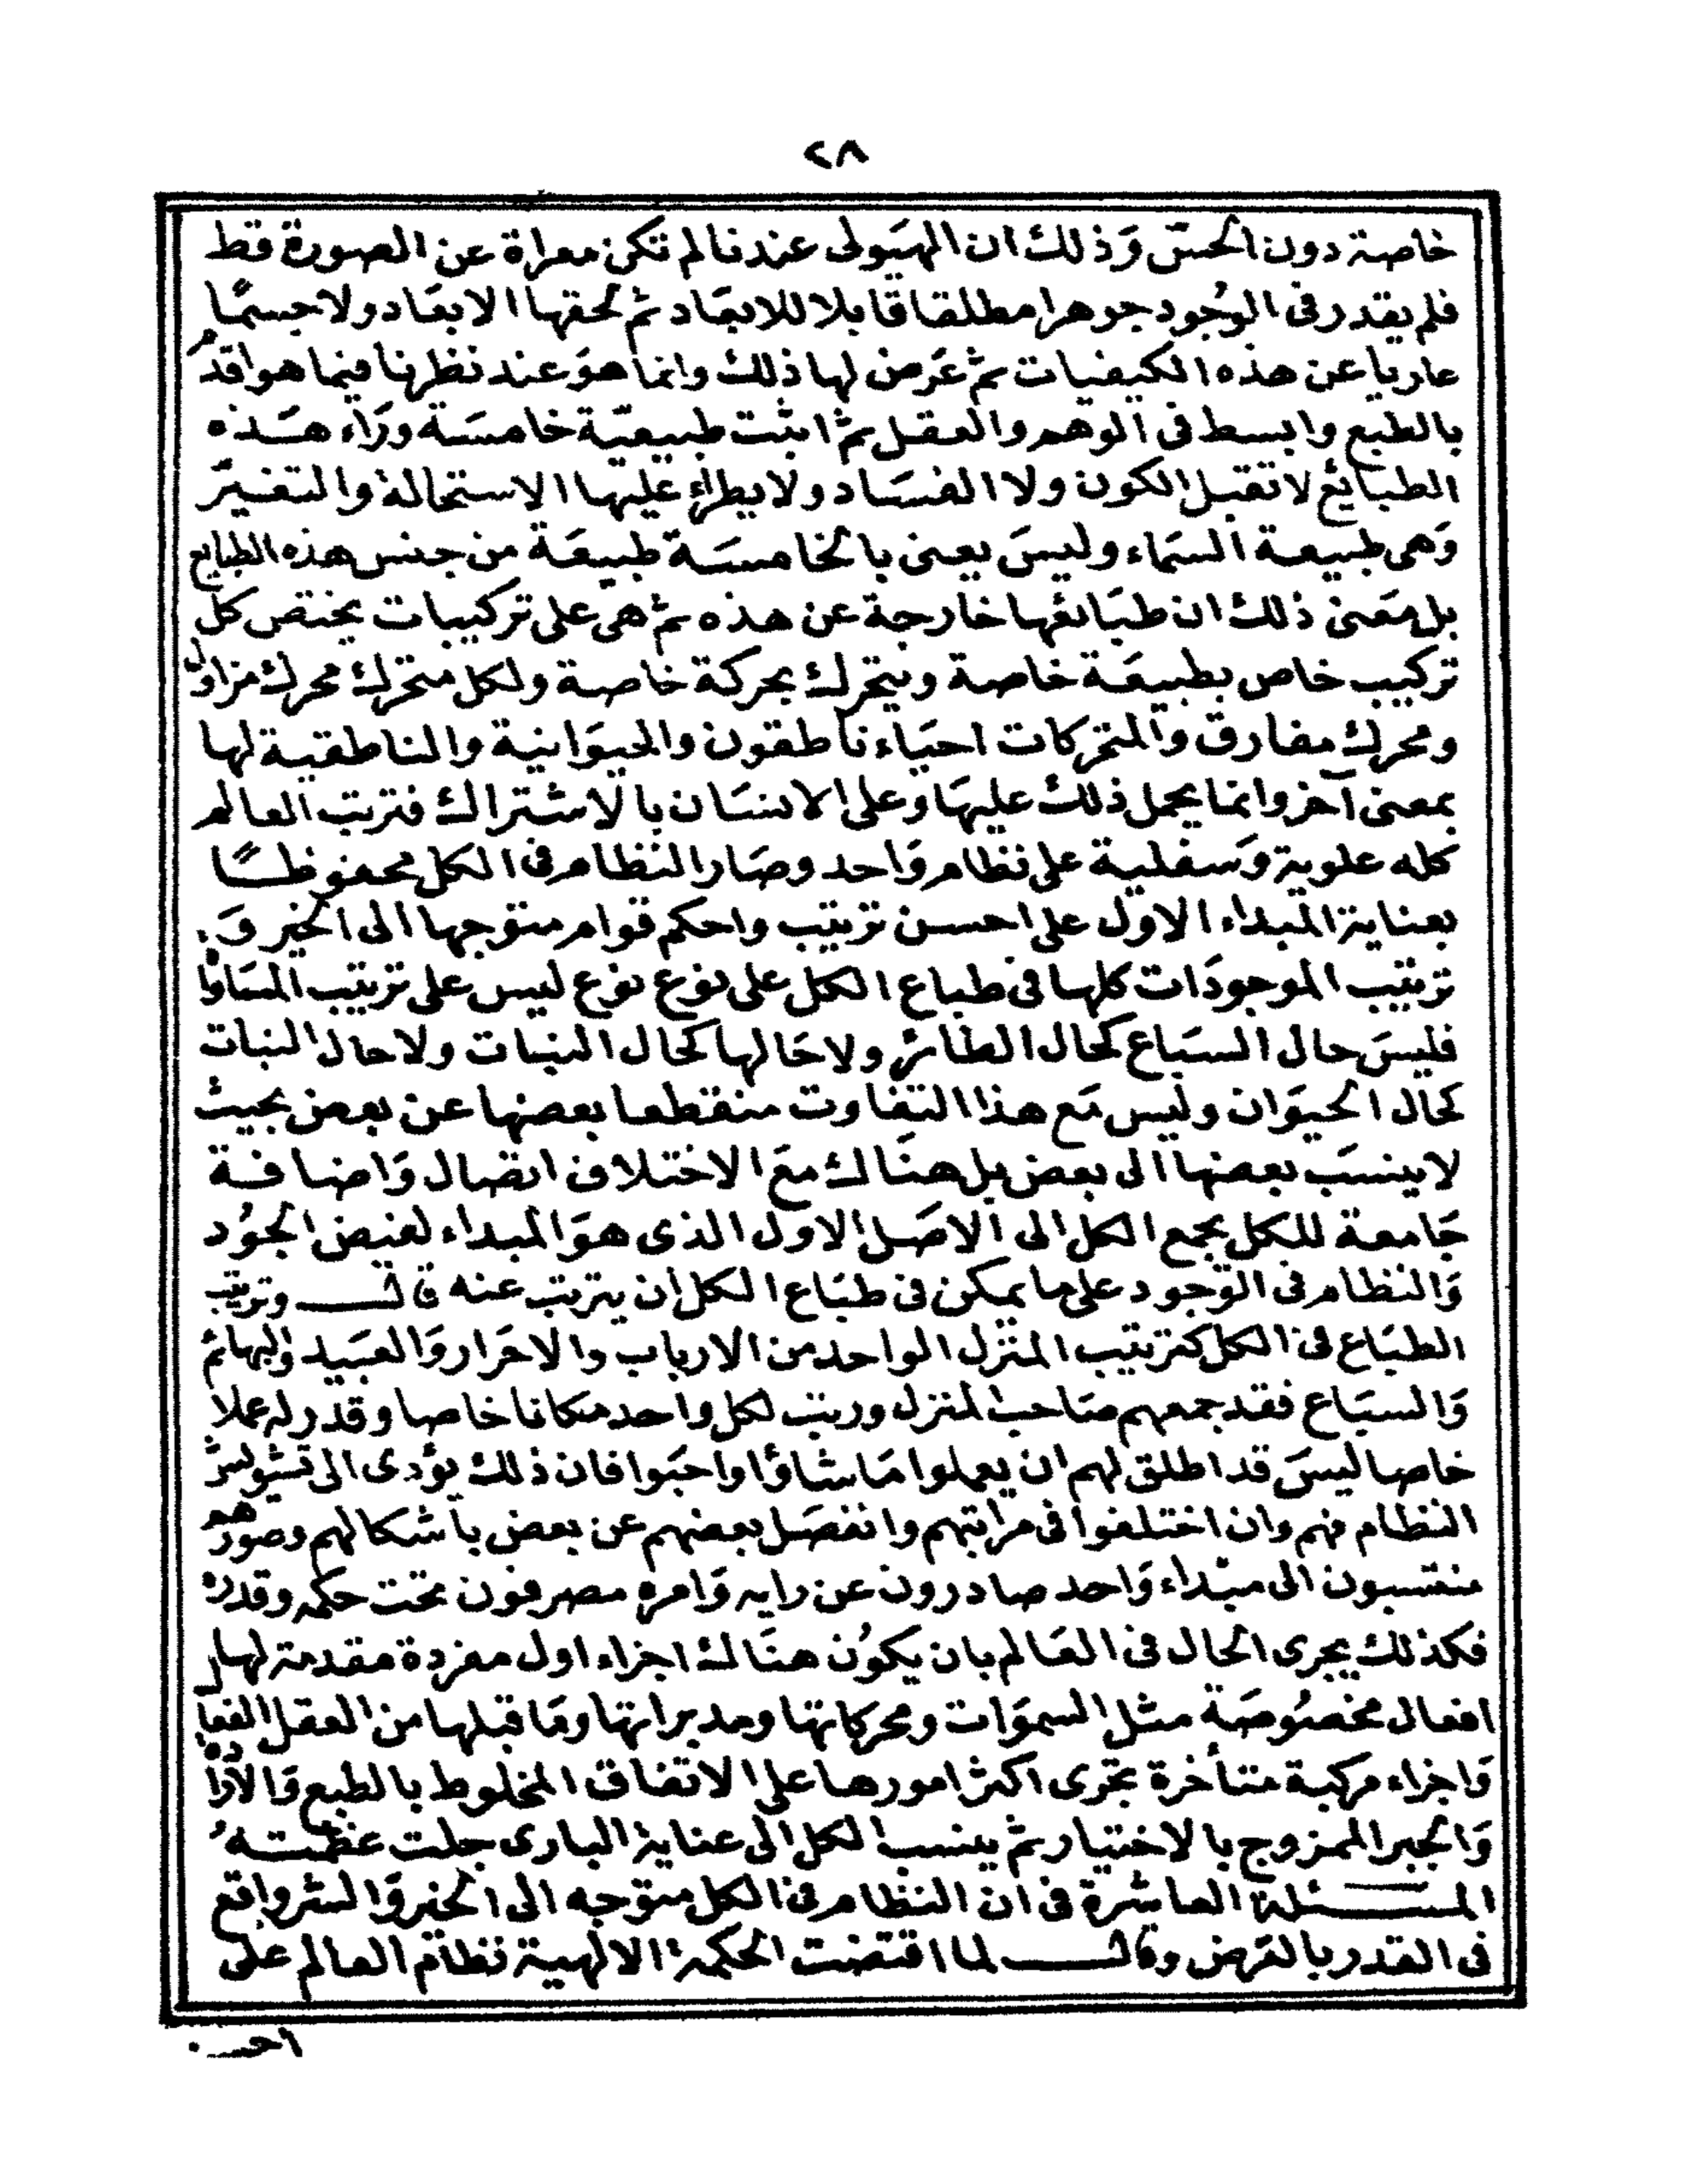 ٢٨
خاصة دون الحسّ وَذلك ان الهيَولى عندنا لم تكن معراة عن الصورة قط
فلم يقدر فى الوُجود جوهرا مطلقا قابلا للابعَاد ثم لحقها الابعَاد ولا جسمًا
عاريا عن هذه الكيفيات ثم عَرض لها ذلك وانما هوَ عند نظرنا فيما هو اقدم
بالطبع وابسط فى الوهم والعقل ثم اثبت طبيعيّة خامسَة ورَاء هَذه
الطبائع لا تقبل الكون ولا الفسَاد ولا يطراء عليها الاستحالة والتغيرّ
وَهى طبيعة السمَاء وليسَ يعنى بالخامسَة طبيعَة من جنس هذه الطبايع
بل معَنى ذلك ان طبَائعها خارجة عن هذه ثم هى على تركيبات يختص كل
تركيب خاص بطبيعَة خاصة ويتحرك بحركة خاصة ولكل متحرك محرك مزاول
ومحرك مفارق والمتحركات احيَاء ناطقون والحيوَانية والناطقية لها
بمعنى آخر وانما يحمل ذلك عليهَا وعلى الانسَان بالاشتراك فترتب العالم
كله علوية وَسفلية على نظام وَاحد وصَار النظام فى الكل محفوظـًا
بعناية المبداء الاول على احسن ترتيب واحكم قوام متوجها الى الخير وَ.
ترتيب الموجودَات كلها فى طباع الكل على نوع نوع ليس على ترتيب المسَاواة
فليسَ حال السبَاع كحال الطائر ولا حَالها كحال النبات ولا حال النبات
كحال الحيوَان وليس مَع هذا التفاوت منقطعا بعضها عن بعض بحيث
لا ينسَب بعضها الى بعض بل هنَاك معَ الاختلاف اتصال وَاضافة
جَامعة للكل يجمع الكل الى الاصَل الاول الذى هوَ المبداء لفيض الجوُد
وَالنظام فى الوَجود على ما يمكن فى طبَاع الكل ان يترتب عنه قالــ وترتيب
الطبَاع فى الكل كترتيب المنزل الواحد من الارباب والاحَرار وَالعبَيد والبهائم
وَالسبَاع فقد جمعهم صَاحب المنزل ورتب لكل واحد مكانا خاصا وقدر له عملا
خاصا ليسَ قد اطلق لهم ان يعملوا مَا شاؤا واحبَوا فان ذلك يؤدى الى تشويش
النظام فهم وان اختلفوا فى مراتبهم وانفصَل بعضهم عن بعض بأشكالهم وصورهم
منتسبون الى مبَداء وَاحد صادرون عن رايه وَامره مصرفون تحت حكمه وقدره
فكذلك يجرى الحال فى العَالم بان يكوُن هنَاك اجزاء اول مفردة مقدمة لها
افعال مخصُوصَة مثل السموَات ومحركاتها ومدبراتها ومَا قبلها من العقل الفعال
وَاجزاء مركبة متأخرة تجرى اكثر امورها على الاتفاق المخلوط بالطبع وَالارادة
وَالجبر الممزوج بالاختيار ثم ينسب الكل الى عناية البارى جلت عظَمتهُ
المســئلة العاشرة فى ان النظام فى الكل متوجه الى الخير وَالشر واقع
فى القدر بالعَرض وقالــ لما اقتضت الحكمة الالهية نظام العالم على
احسن